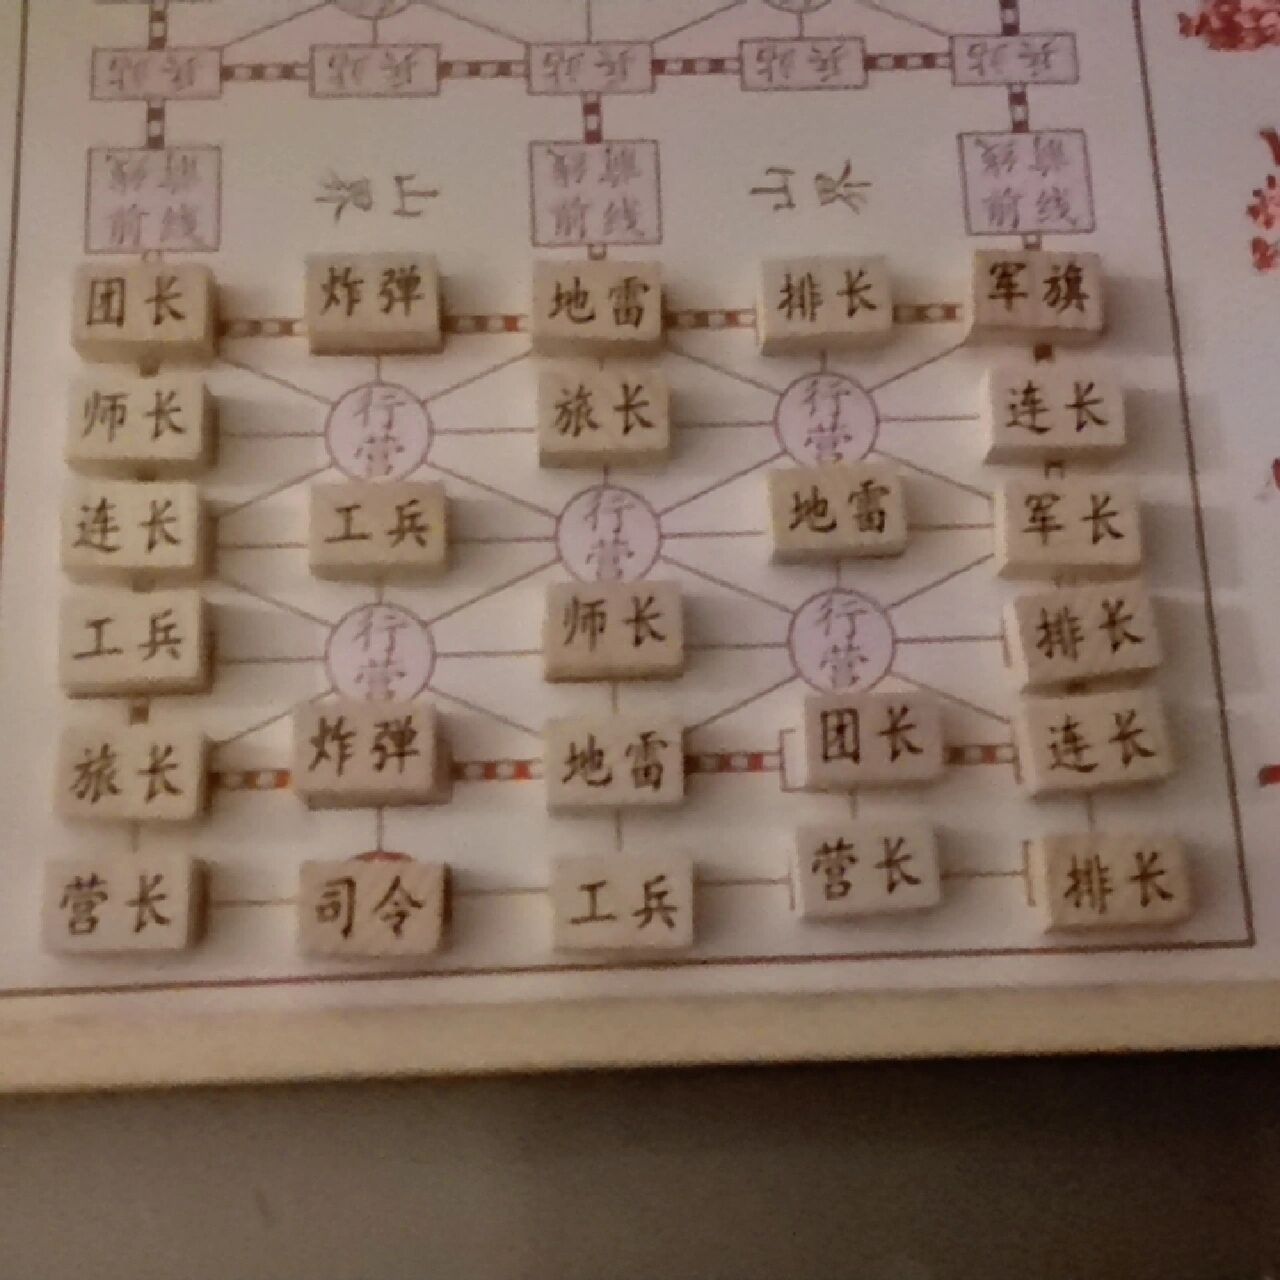 兵站 兵站 兵站 兵站 兵站
前线 前线 前线
前线 前线 前线
团长 炸弹 地雷 排长 军旗
师长 行营 旅长 行营 连长
连长 工兵 行营 地雷 军长
工兵 行营 师长 行营 排长
旅长 炸弹 地雷 团长 连长
营长 司令 工兵 营长 排长